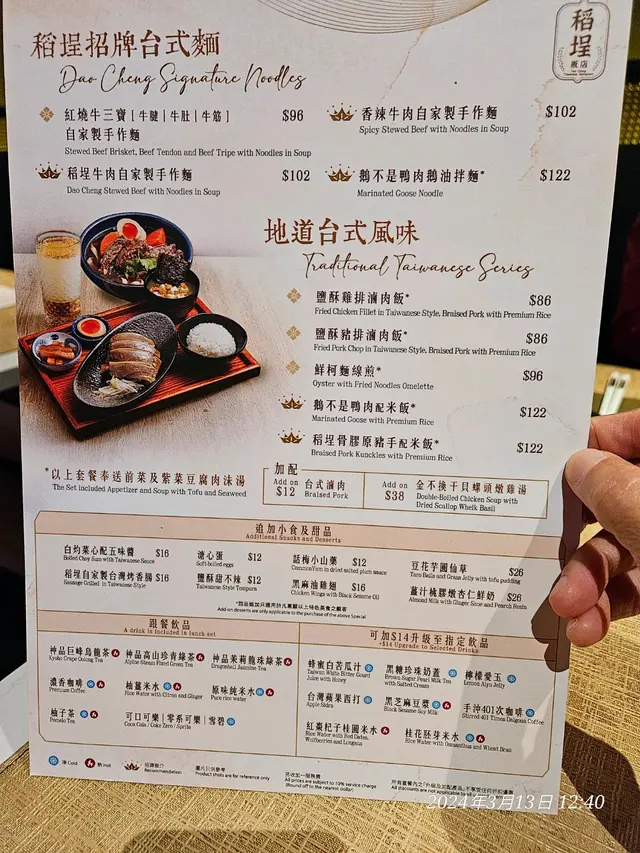 稻埕
飯店
稻埕招牌台式麵
Dao Cheng Signature Noodles
紅燒牛三寶 [ 牛腱 | 牛肚 | 牛筋 ] $96
自家製手作麵
Stewed Beef Brisket, Beef Tendon and Beef Tripe with Noodles in Soup
香辣牛肉自家製手作麵 $102
Spicy Stewed Beef with Noodles in Soup
稻埕牛肉自家製手作麵 $102
Dao Cheng Stewed Beef with Noodles in Soup
鵝不是鴨肉鵝油拌麵* $122
Marinated Goose Noodle
地道台式風味
Traditional Taiwanese Series
鹽酥雞排滷肉飯* $86
Fried Chicken Fillet in Taiwanese Style, Braised Pork with Premium Rice
鹽酥豬排滷肉飯* $86
Fried Pork Chop in Taiwanese Style, Braised Pork with Premium Rice
鮮柯麵線煎* $96
Oyster with Fried Noodles Omelette
鵝不是鴨肉配米飯* $122
Marinated Goose with Premium Rice
稻埕骨膠原豬手配米飯* $122
Braised Pork Kunckles with Premium Rice
*以上套餐奉送前菜及紫菜豆腐肉沫湯
The Set included Appetizer and Soup with Tofu and Seaweed
加配
Add on $12 台式滷肉
Braised Pork
Add on $38 金不換干貝螺頭燉雞湯
Double-Boiled Chicken Soup with
Dried Scallop Whelk Basil
追加小食及甜品
Additional Snacks and Desserts
白灼菜心配五味醬 $16
Boiled Choy Sum with Taiwanese Sauce
溏心蛋 $12
Soft-boiled eggs
話梅小山藥 $12
豆花芋圓仙草 $26
Taro Balls and Grass Jelly with tofu pudding
稻埕自家製台灣烤香腸 $16
Sausage Grilled in Taiwanese Style
鹽酥甜不辣 $12
Taiwanese Style Tempura
黑麻油雞翅 $16
Chicken Wings with Black Sesame Oil
薑汁桃膠燉杏仁鮮奶 $26
跟餐飲品
A drink is included in lunch set
神品巨峰烏龍茶
Kyoho Grape Oolong Tea
神品高山珍青綠茶
Alpine Steam Fixed Green Tea
神品茉莉龍珠綠茶
Dragonball Jasmine Tea
濃香咖啡
Premium Coffee
柚薑米水
Rice Water with Citrus and Ginger
原味純米水
Pure rice water
柚子茶
Pomelo Tea
可口可樂 | 零系可樂 | 雪碧
Coca Cola / Coke Zero / Sprite
可加$14升級至指定飲品
+$14 Upgrade to Selected Drinks
蜂蜜白苦瓜汁
Taiwan White Bitter Gourd
Juice with Honey
黑糖珍珠奶蓋
Brown Sugar Pearl Milk Tea
with Salted Cream
檸檬愛玉
Lemon Aiyu Jelly
台灣蘋果西打
Apple Sidra
黑芝麻豆漿
Black Sesame Soy Milk
手沖401次咖啡
Stirred 401 Times Dalgona Coffee
紅棗杞子桂圓米水
Rice Water with Red Dates,
Wolfberries and Longans
桂花胚芽米水
Rice Water with Osmanthus and Wheat Bran
凍 Cold
熱 Hot
招牌推介
Recommendation
圖片只供參考
Product shots are for reference only
另收加一服務費
All prices are subject to 10% service charge
(Round off to the nearest dollar)
2024年3月13日 12:40